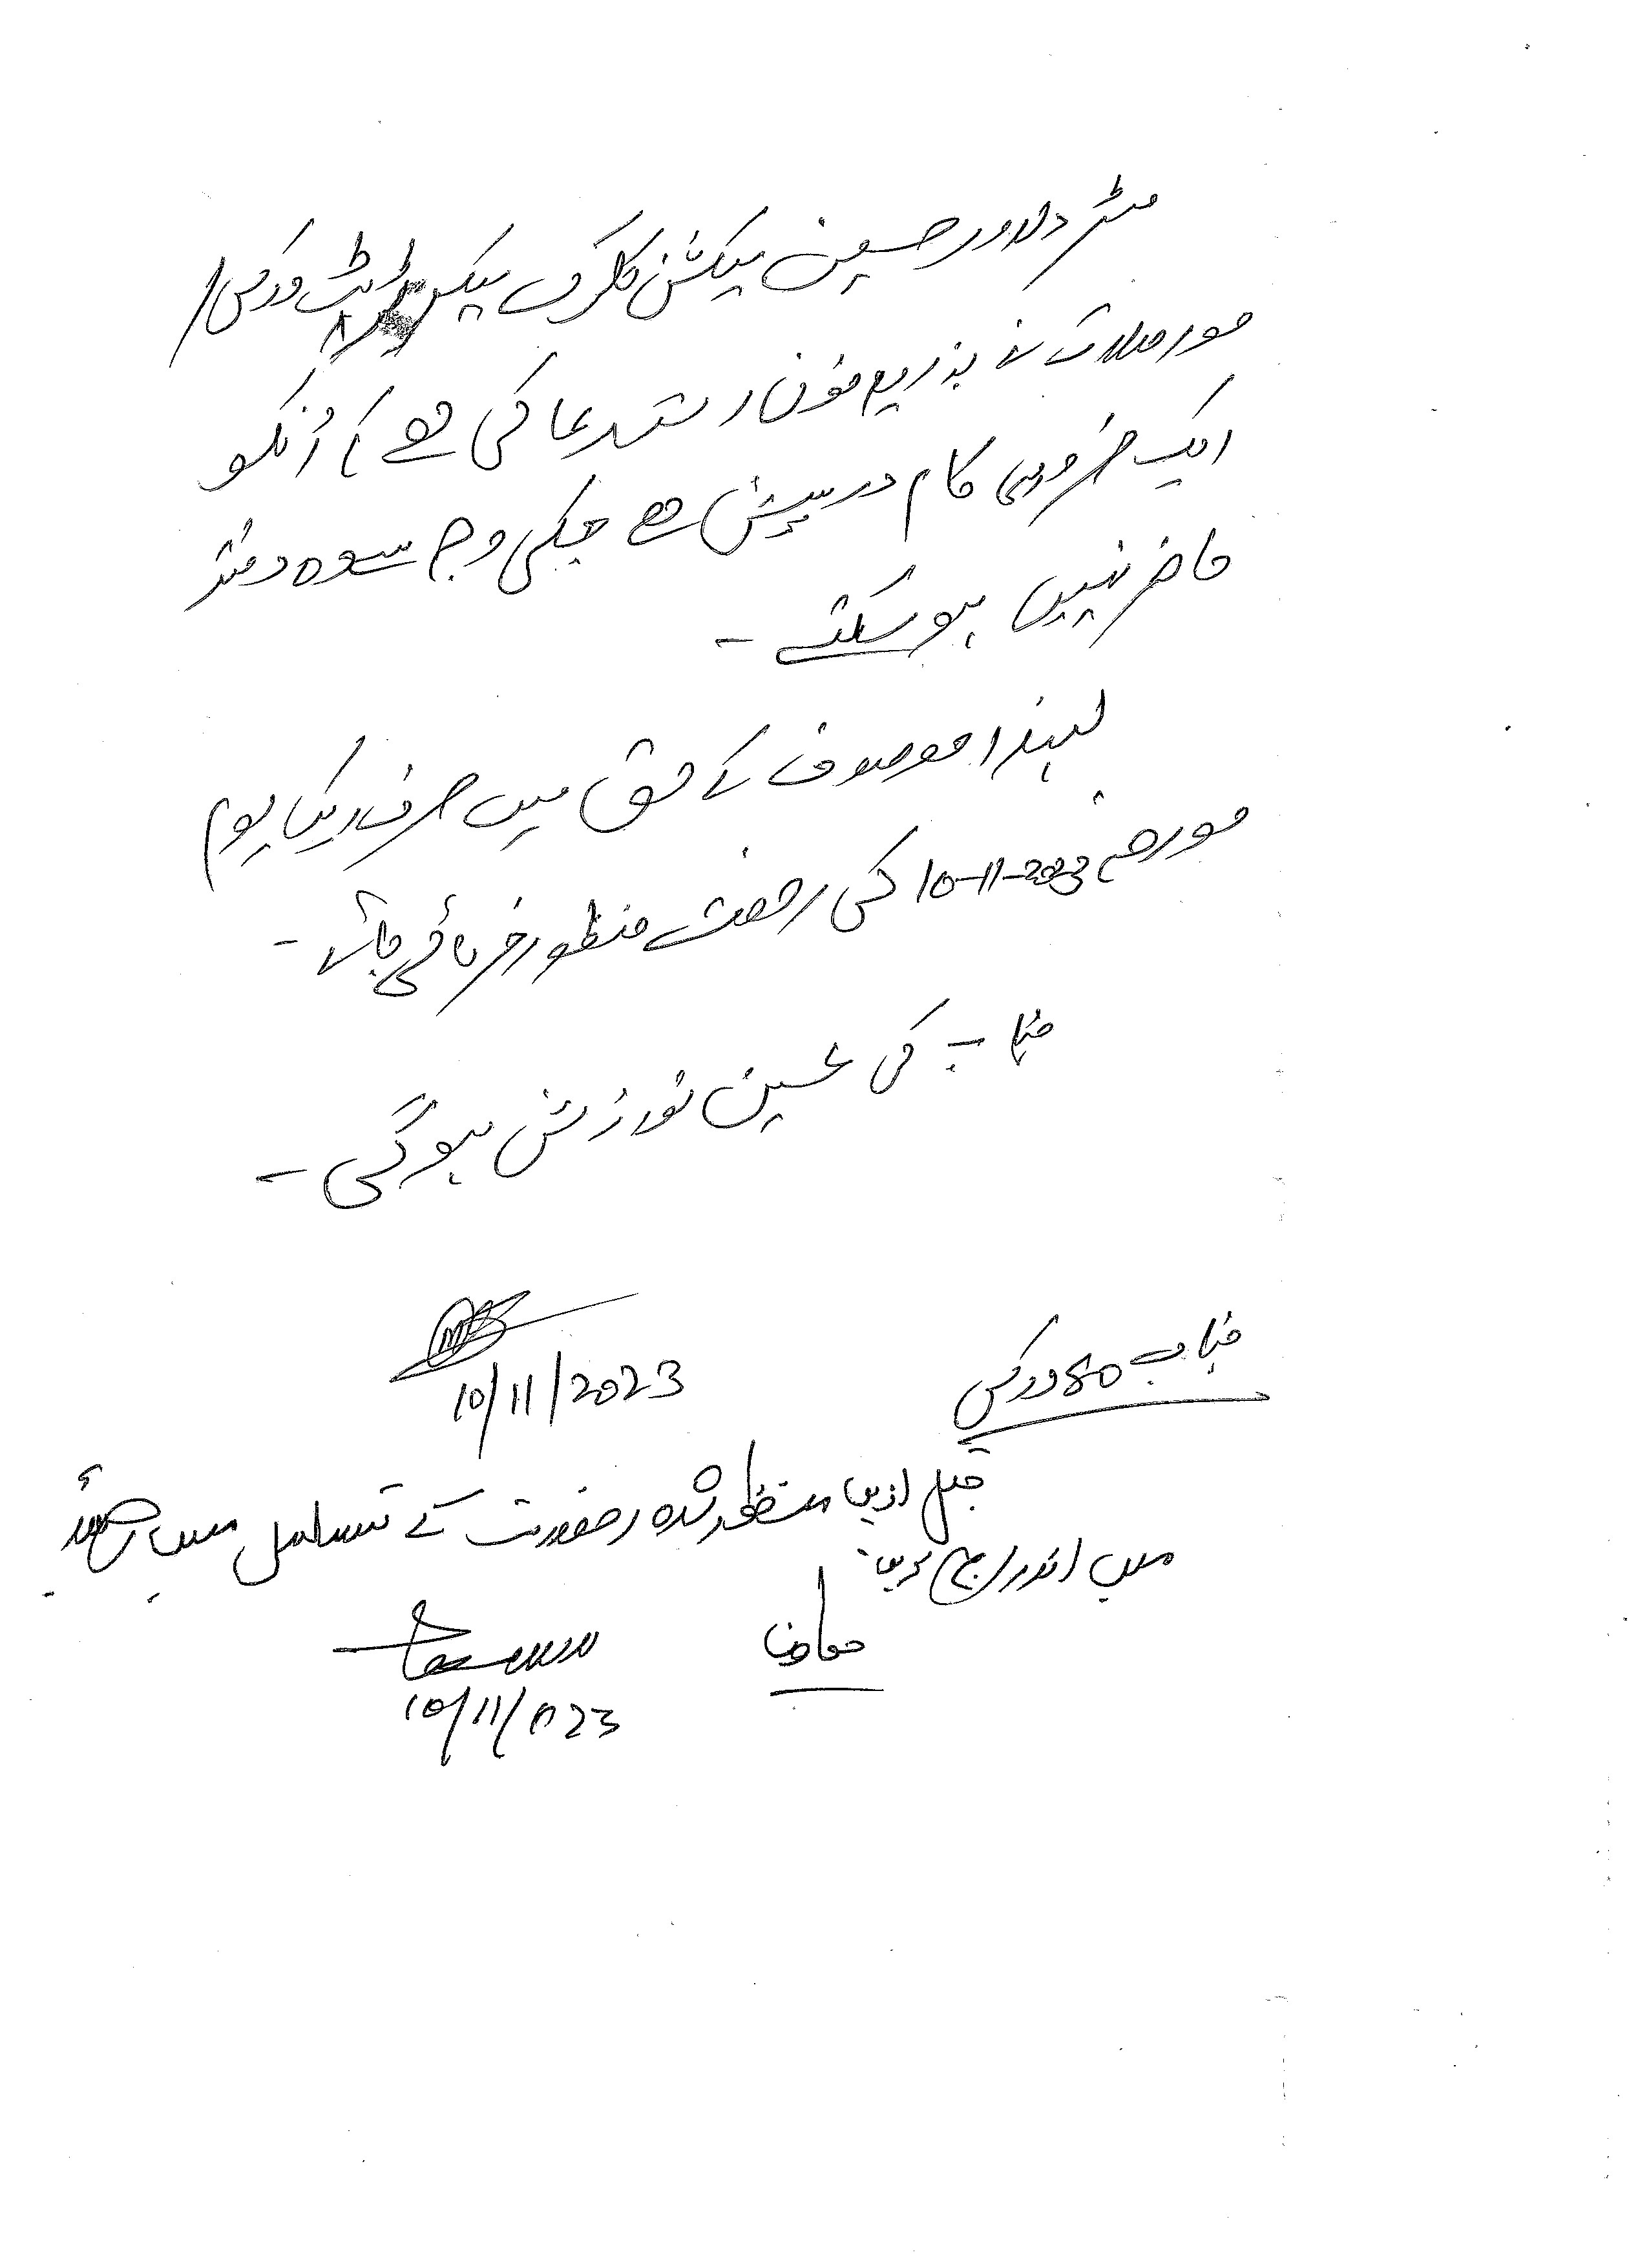 مسٹر دلاور حسین سیکشن کلرک سیکریٹریٹ ورکس /
مورصلات نے بذریعہ فون استدعا کی ہے کہ اُنکو
ایک ضروری کام درپیش ہے جسکی وجہ سے وہ دفتر
حاضر نہیں ہو سکتے ۔
لہٰذا موصوف کے حق میں صرف ایک یوم
مورخہ 10-11-2023 کی رخصت منظور فرمائی جائے ۔
جناب کی عین نوازش ہوگی ۔
10/11/2023
جناب SO ورکس
قبل ازیں منظور شدہ رخصت کے تسلسل میں رجسٹر
میں اندراج کریں ۔
معاون
10/11/023